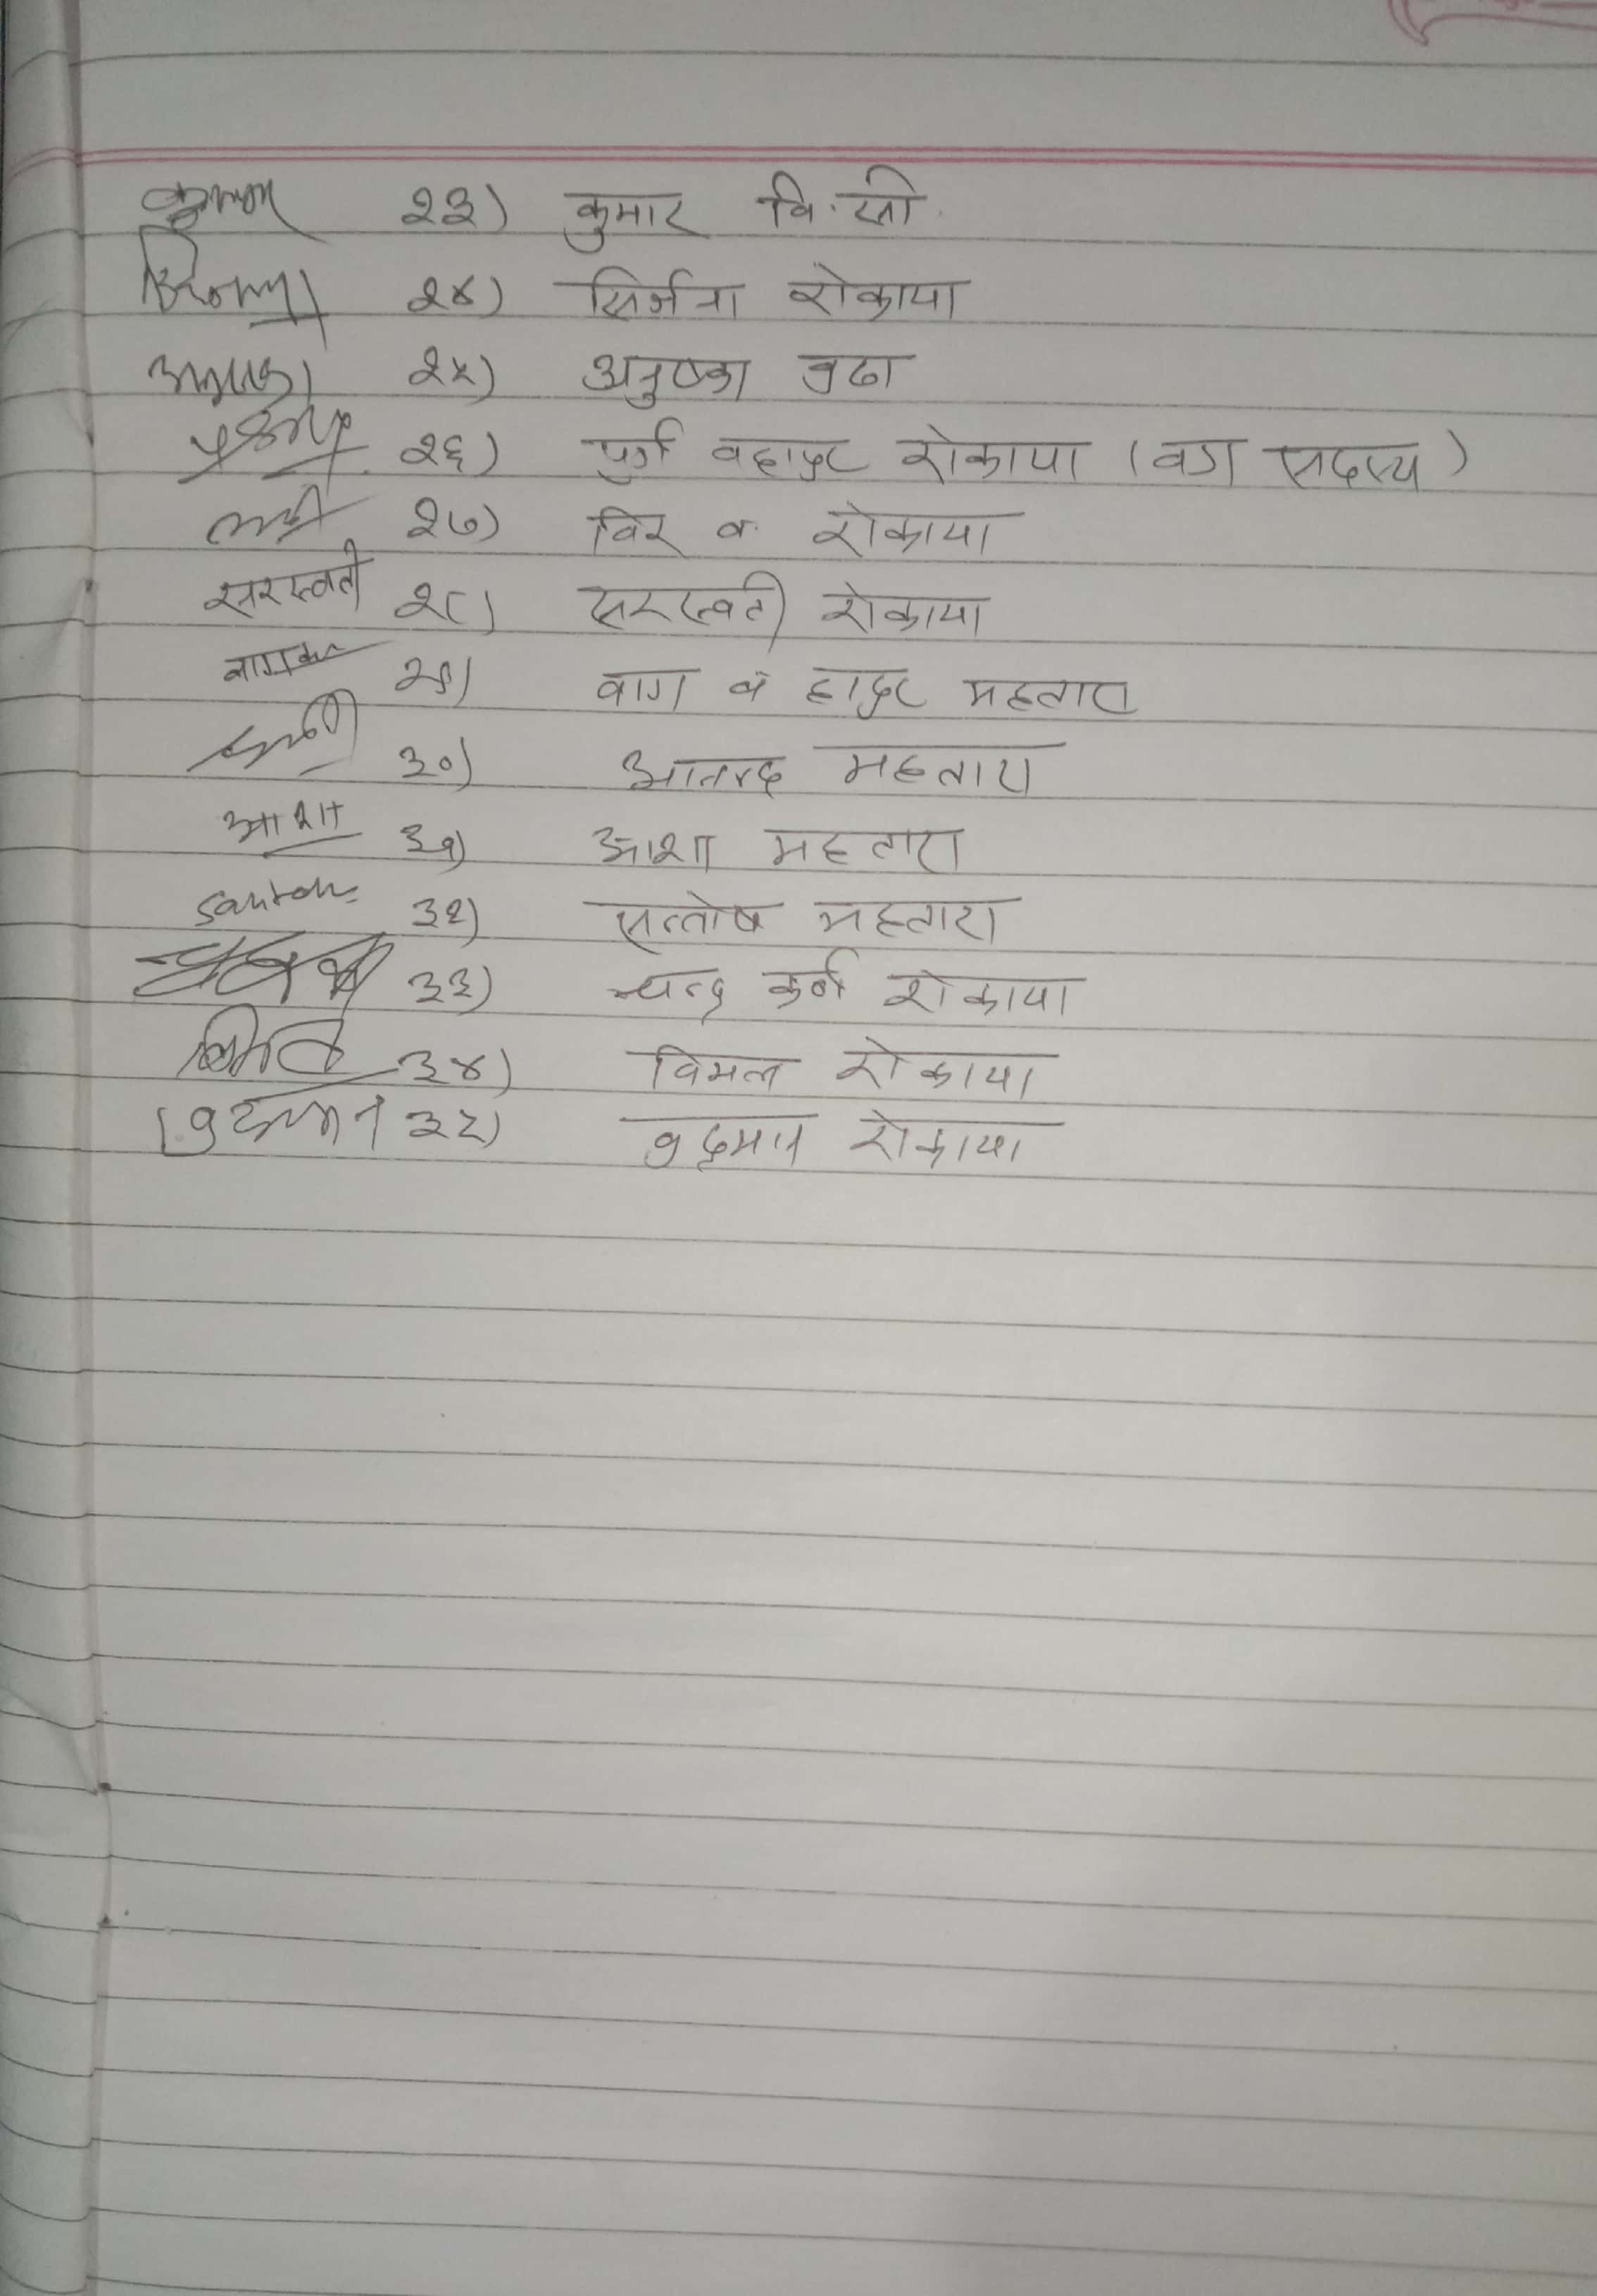 २३) कुमार वि.सी.
२४) सिर्जना रोकाया
२५) अनुष्का बुढा
२६) पुर्ण बहादुर रोकाया (वडा सदस्य)
२७) विर ब. रोकाया
सरस्वती २८) सरस्वती रोकाया
२९) बाग बहादुर महतारा
३०) आनन्द महतारा
आशा ३१) आशा महतारा
Santosh ३२) सन्तोष महतारा
३३) चन्द्र कर्ण रोकाया
३४) विमल रोकाया
३५) बुद्धमान रोकाया